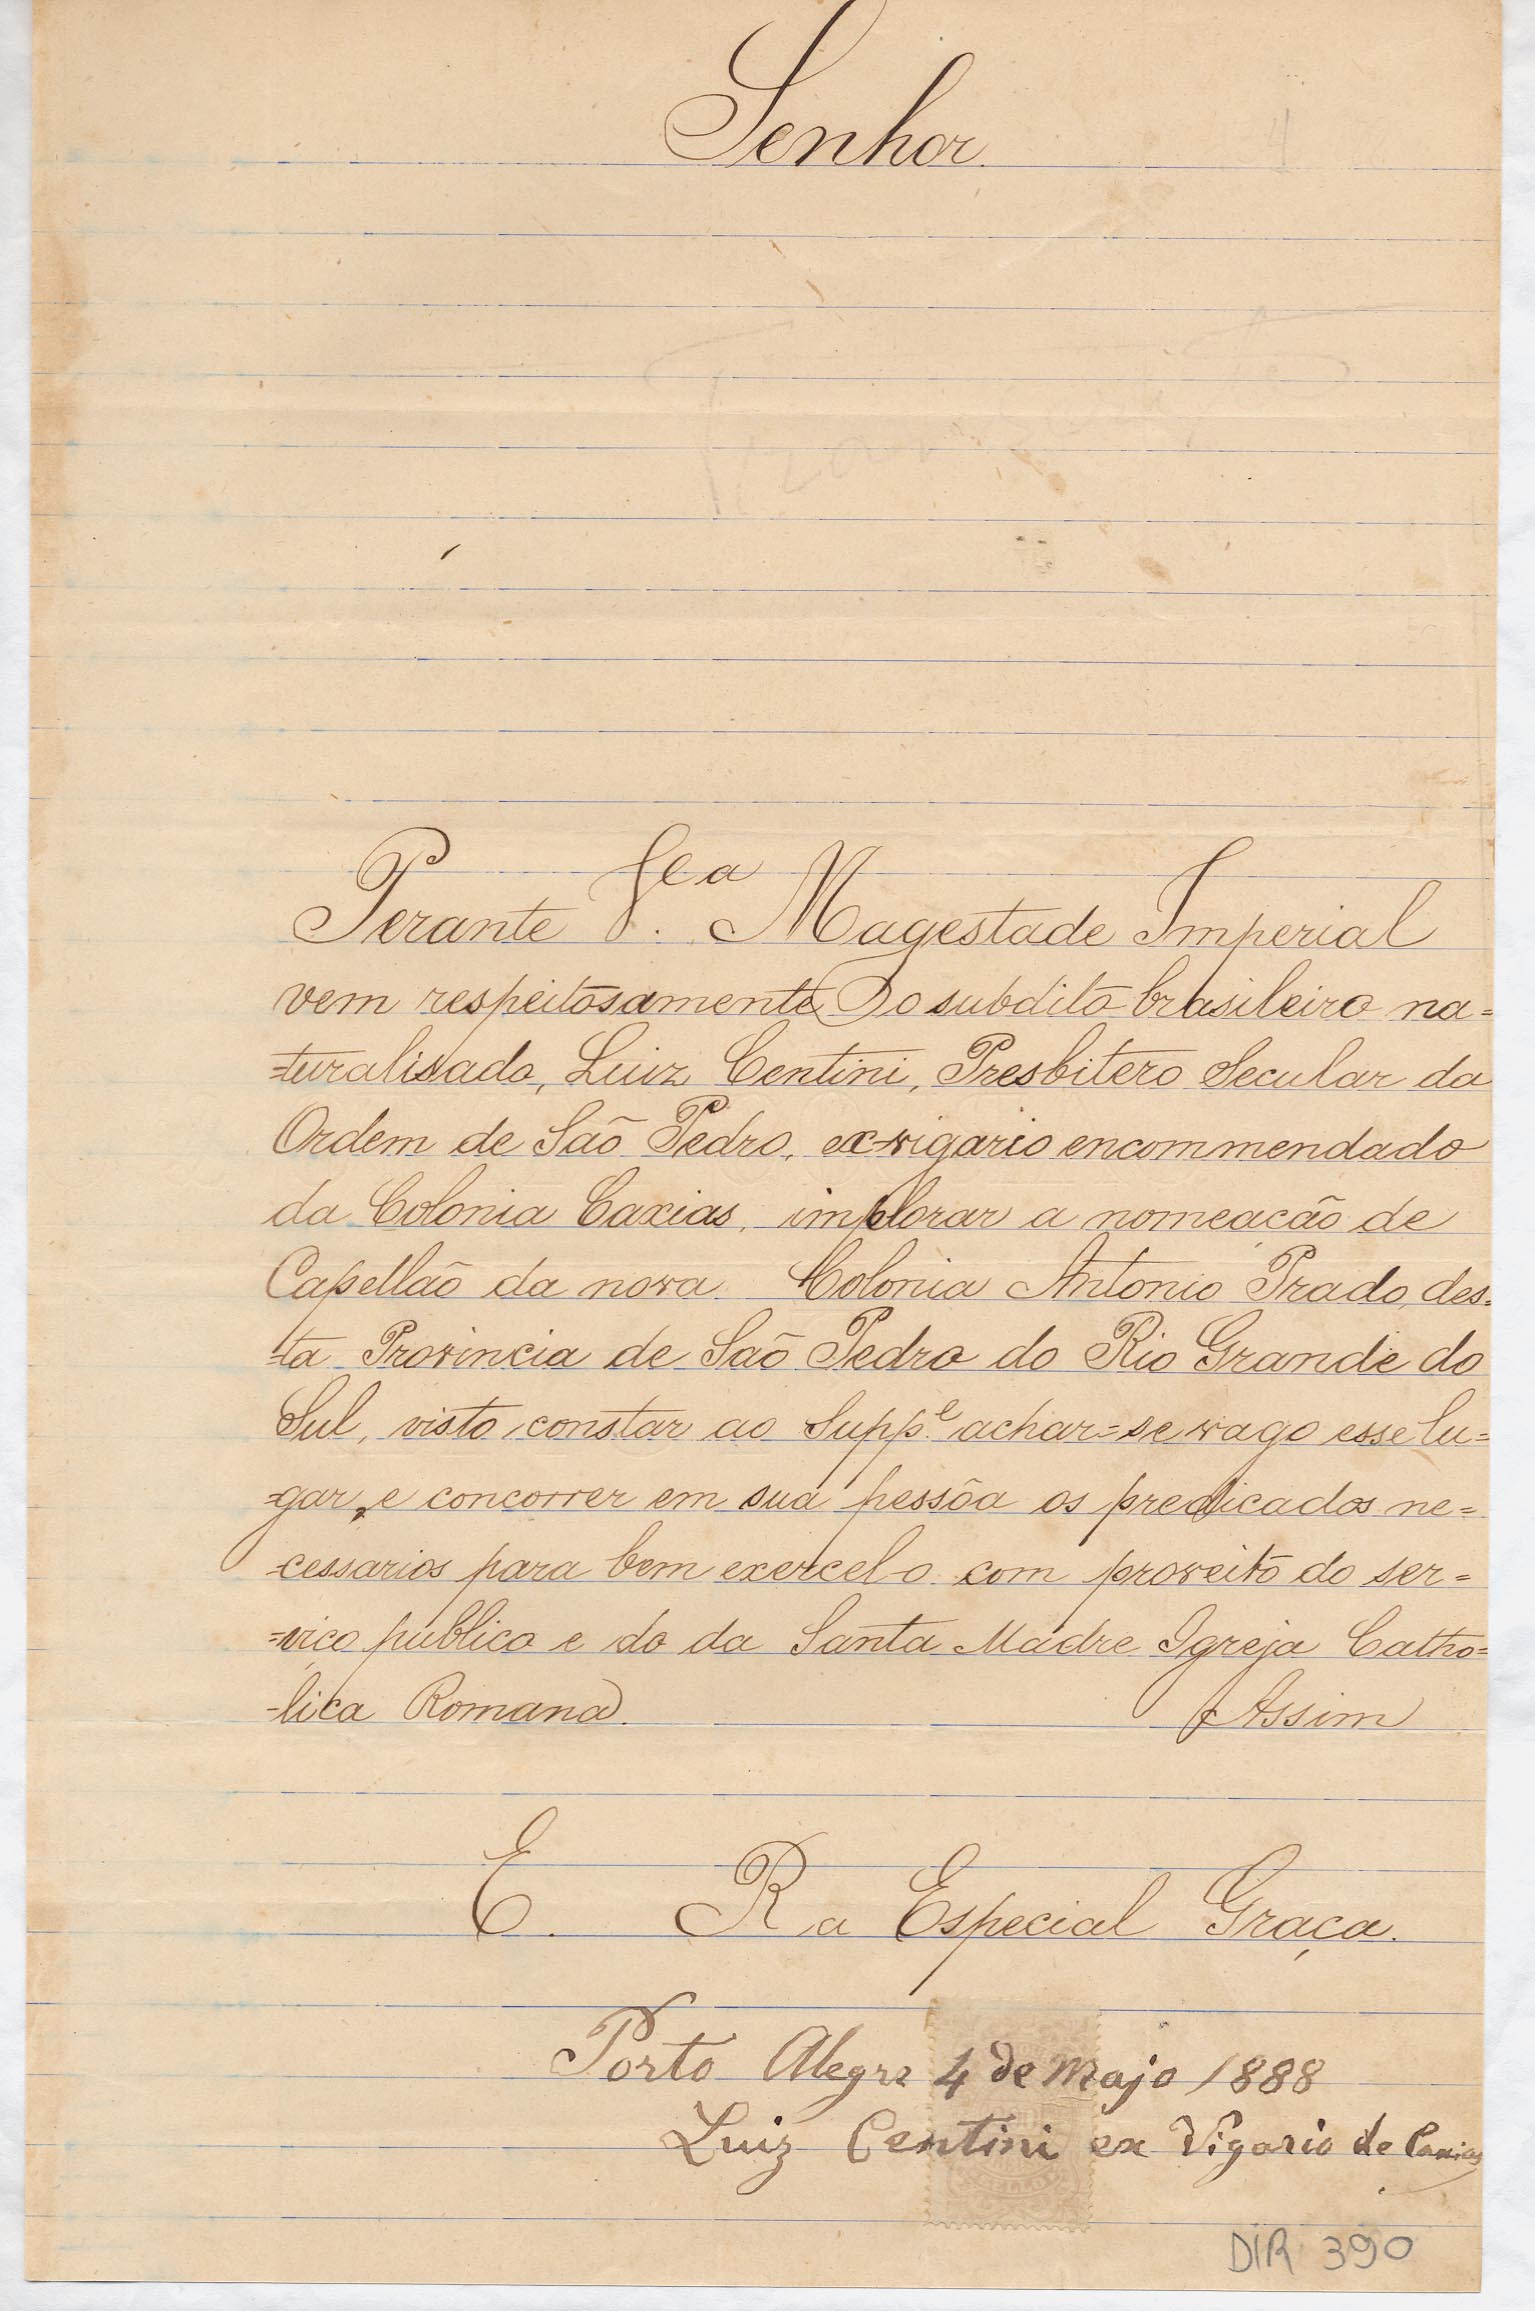 Senhor
Perante V.ª Magestade Imperial
vem respeitosamente o subdito brasileiro na=
=turalisado, Luiz Centini, Presbitero Secular da
Ordem de São Pedro, ex-vigario encommendado
da Colonia Caxias, implorar a nomeação de
Capellão da nova Colonia Antonio Prado, des=
=ta Provincia de São Pedro do Rio Grande do
Sul, visto constar ao Supp.e achar=se vago esse lu=
=gar, e concorrer em sua pessôa os predicados ne=
=cessarios para bem exercel-o com proveito do ser=
=viço publico e do da Santa Madre Igreja Catho=
=lica Romana. Assim
E. R a Especial Graça.
Porto Alegre 4 de Majo 1888
Luiz Centini ex Vigario de Caxias
DIR 390